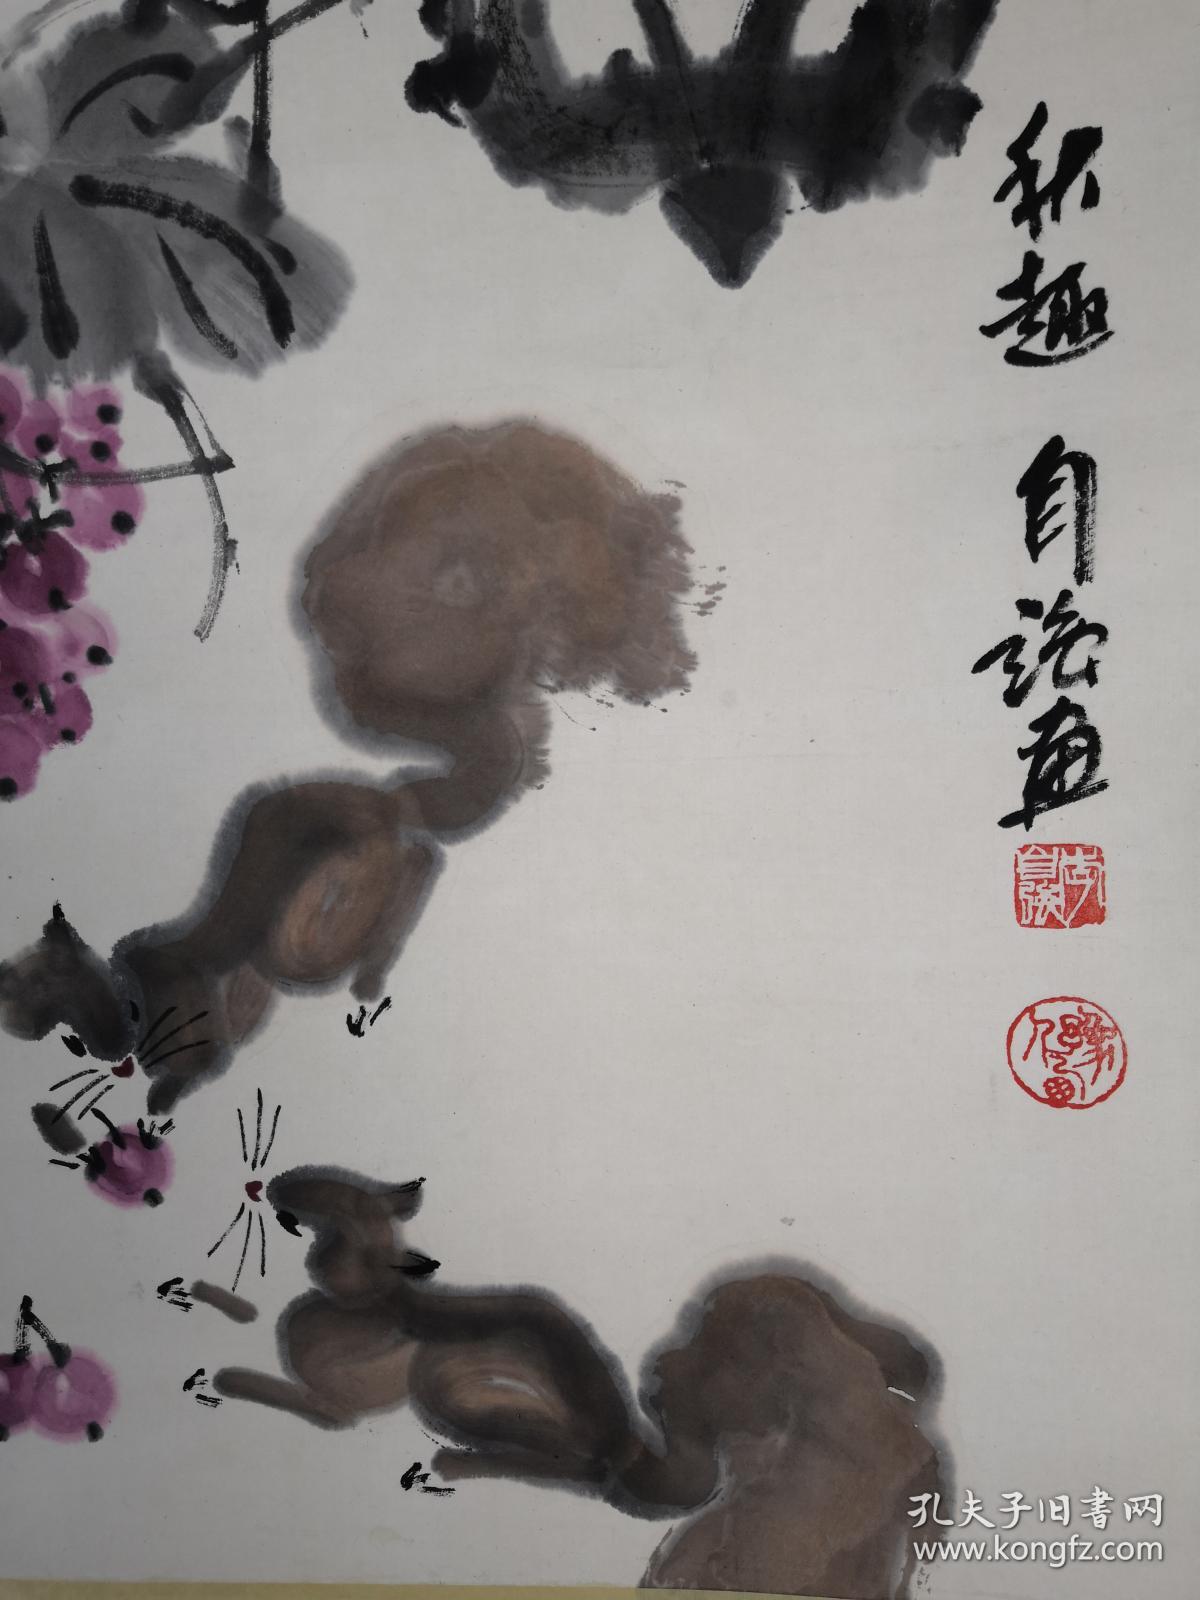 秋趣 自强画
孔夫子旧书网
www.kongfz.com